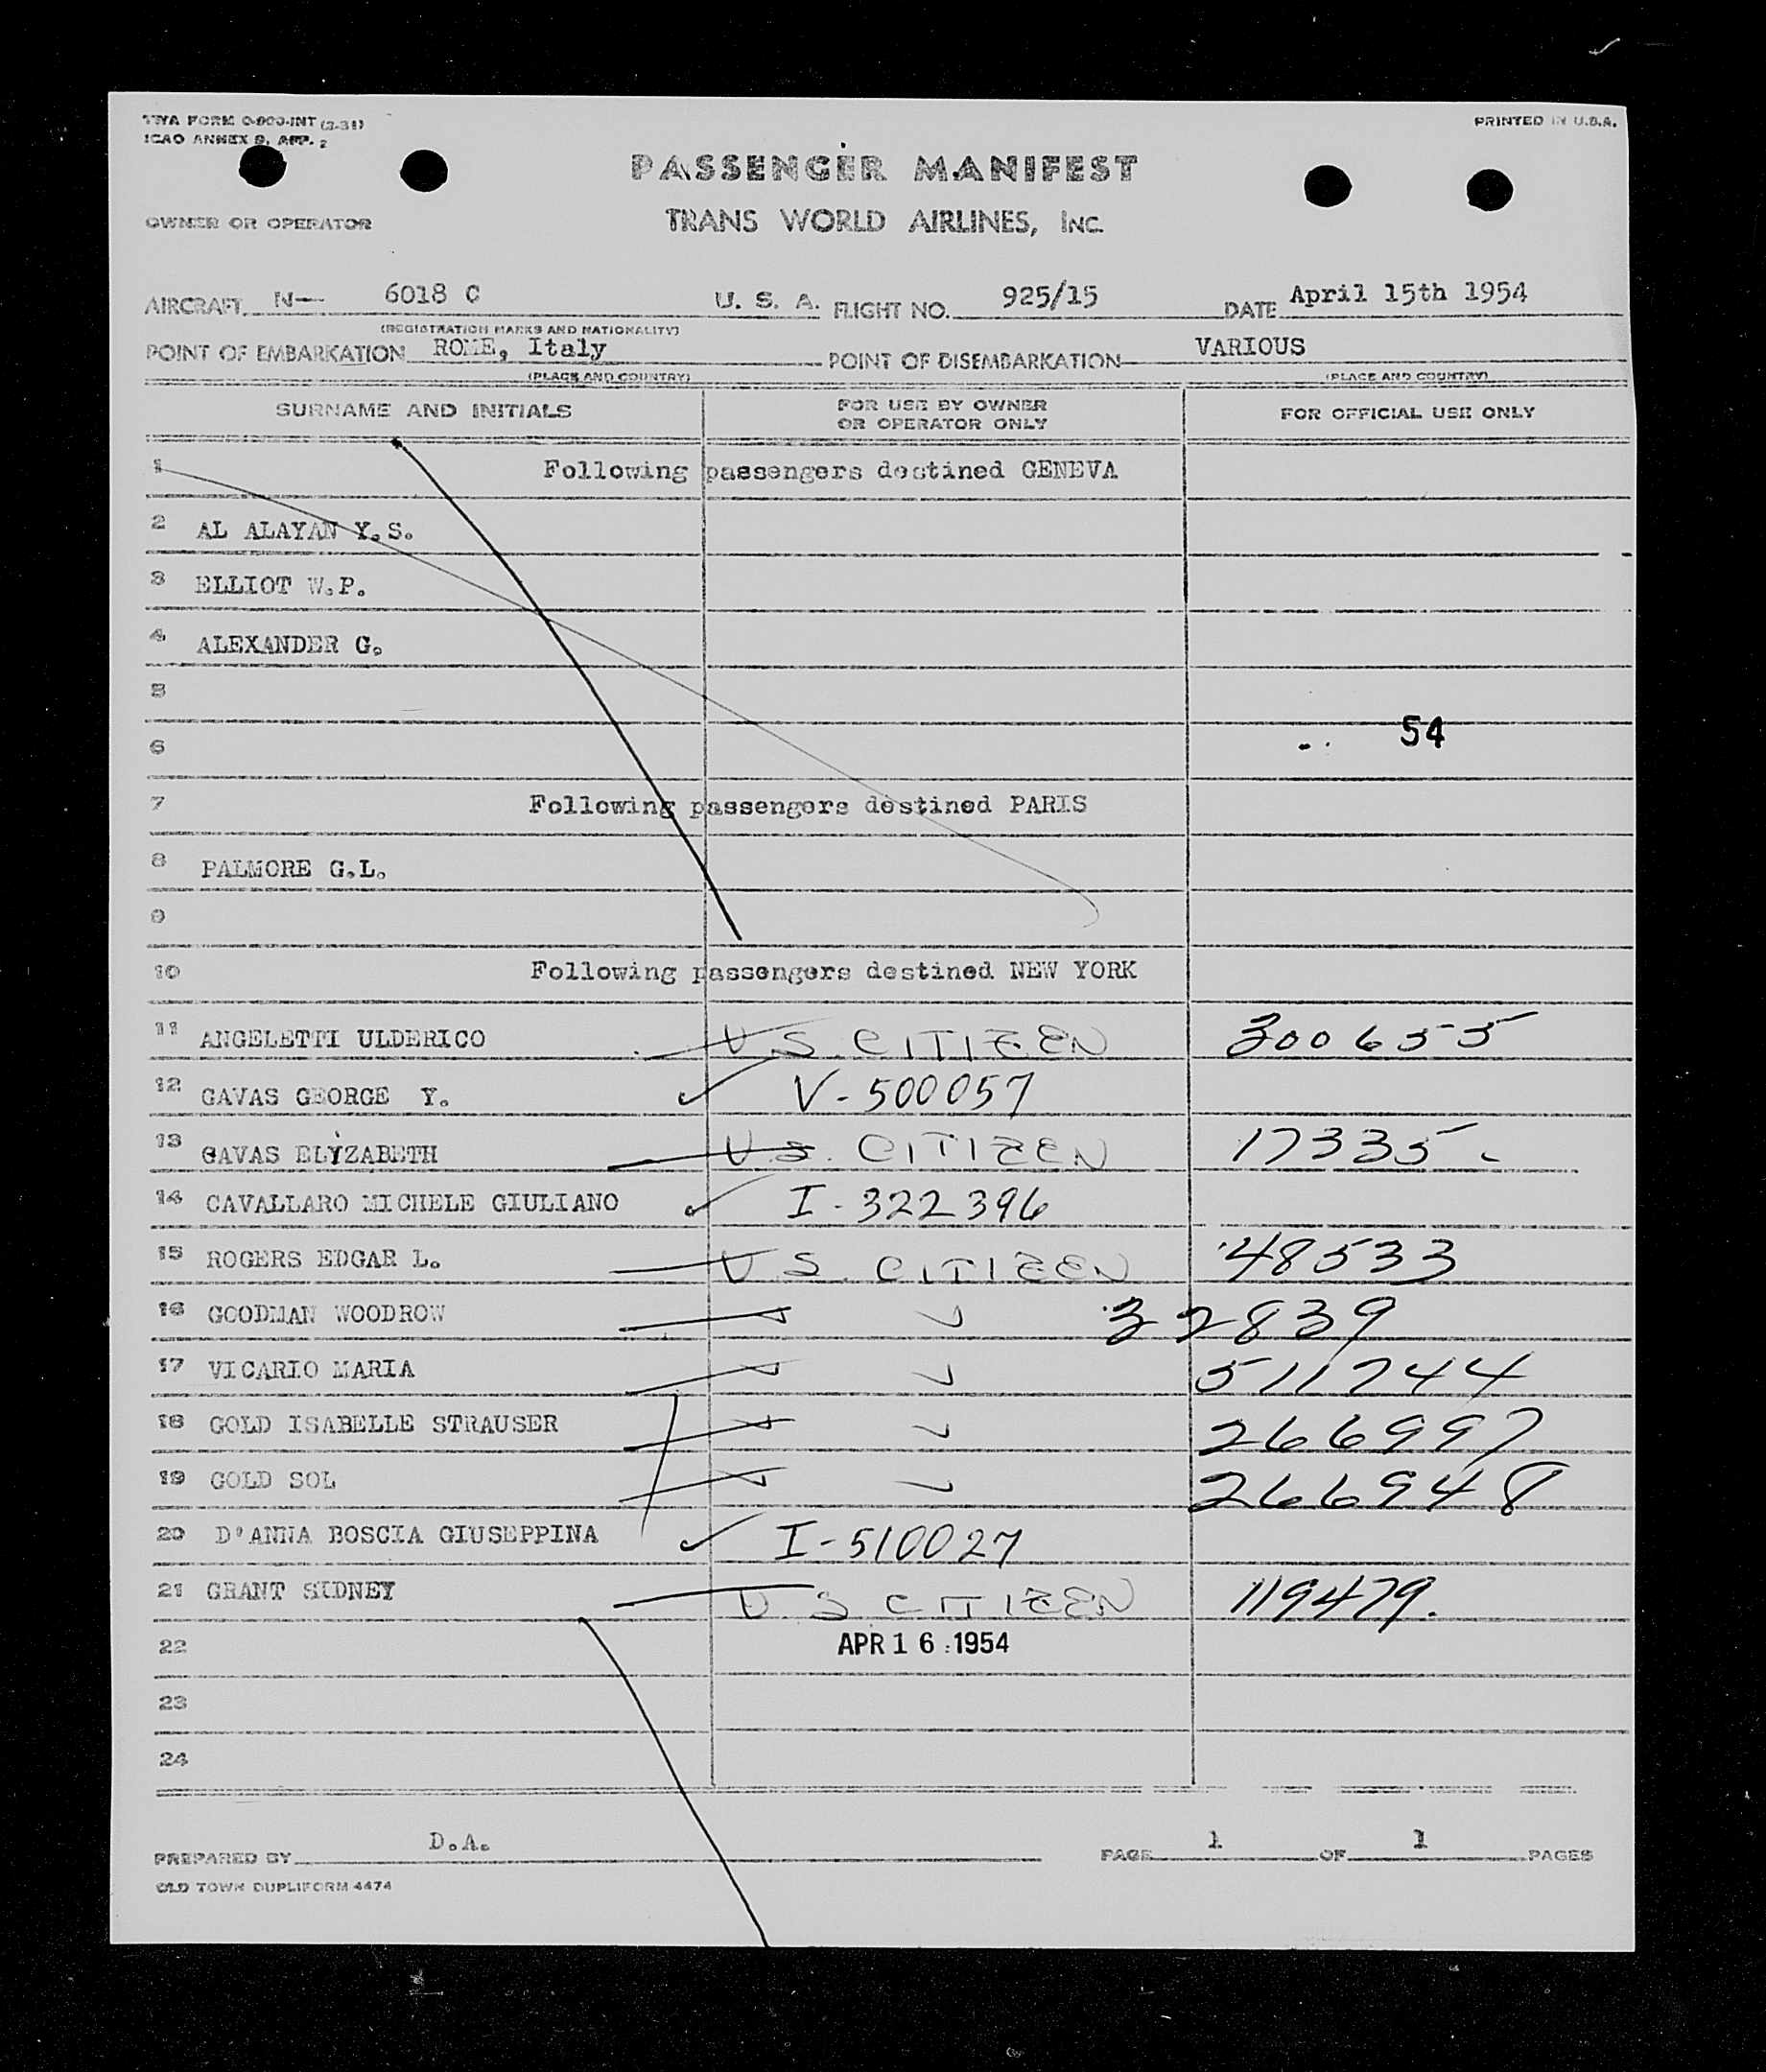 TWA FORM O-800-INT (3-31)
PRINTED IN U.S.A.
ICAO ANNEX 9, APP. 2
PASSENGER MANIFEST
OWNER OR OPERATOR TRANS WORLD AIRLINES, INC.
AIRCRAFT N— 6018 C U. S. A. FLIGHT NO. 925/15 DATE April 15th 1954
(REGISTRATION MARKS AND NATIONALITY)
POINT OF EMBARKATION ROME, Italy POINT OF DISEMBARKATION VARIOUS
(PLACE AND COUNTRY) (PLACE AND COUNTRY)
SURNAME AND INITIALS FOR USE BY OWNER OR OPERATOR ONLY FOR OFFICIAL USE ONLY
1 Following passengers destined GENEVA
2 AL ALAYAN Y.S.
3 ELLIOT W.P.
4 ALEXANDER G.
5
54
6
7 Following passengers destined PARIS
8 PALMORE G.L.
9
10 Following passengers destined NEW YORK
11 ANGELETTI ULDERICO U S. CITIZEN 300655
12 GAVAS GEORGE Y. ✓ V-500057
13 GAVAS ELYZABETH U S. CITIZEN 17335
14 CAVALLARO MICHELE GIULIANO ✓ I-322396
15 ROGERS EDGAR L. U S. CITIZEN 48533
16 GOODMAN WOODROW 32839
17 VICARIO MARIA 511744
18 GOLD ISABELLE STRAUSER 266997
19 GOLD SOL 266948
20 D'ANNA BOSCIA GIUSEPPINA ✓ I-510027
21 GRANT SIDNEY U. S CITIZEN 119479.
22 APR 16 1954
23
24
PREPARED BY D.A. PAGE 1 OF 1 PAGES
OLD TOWN DUPLIFORM 4474